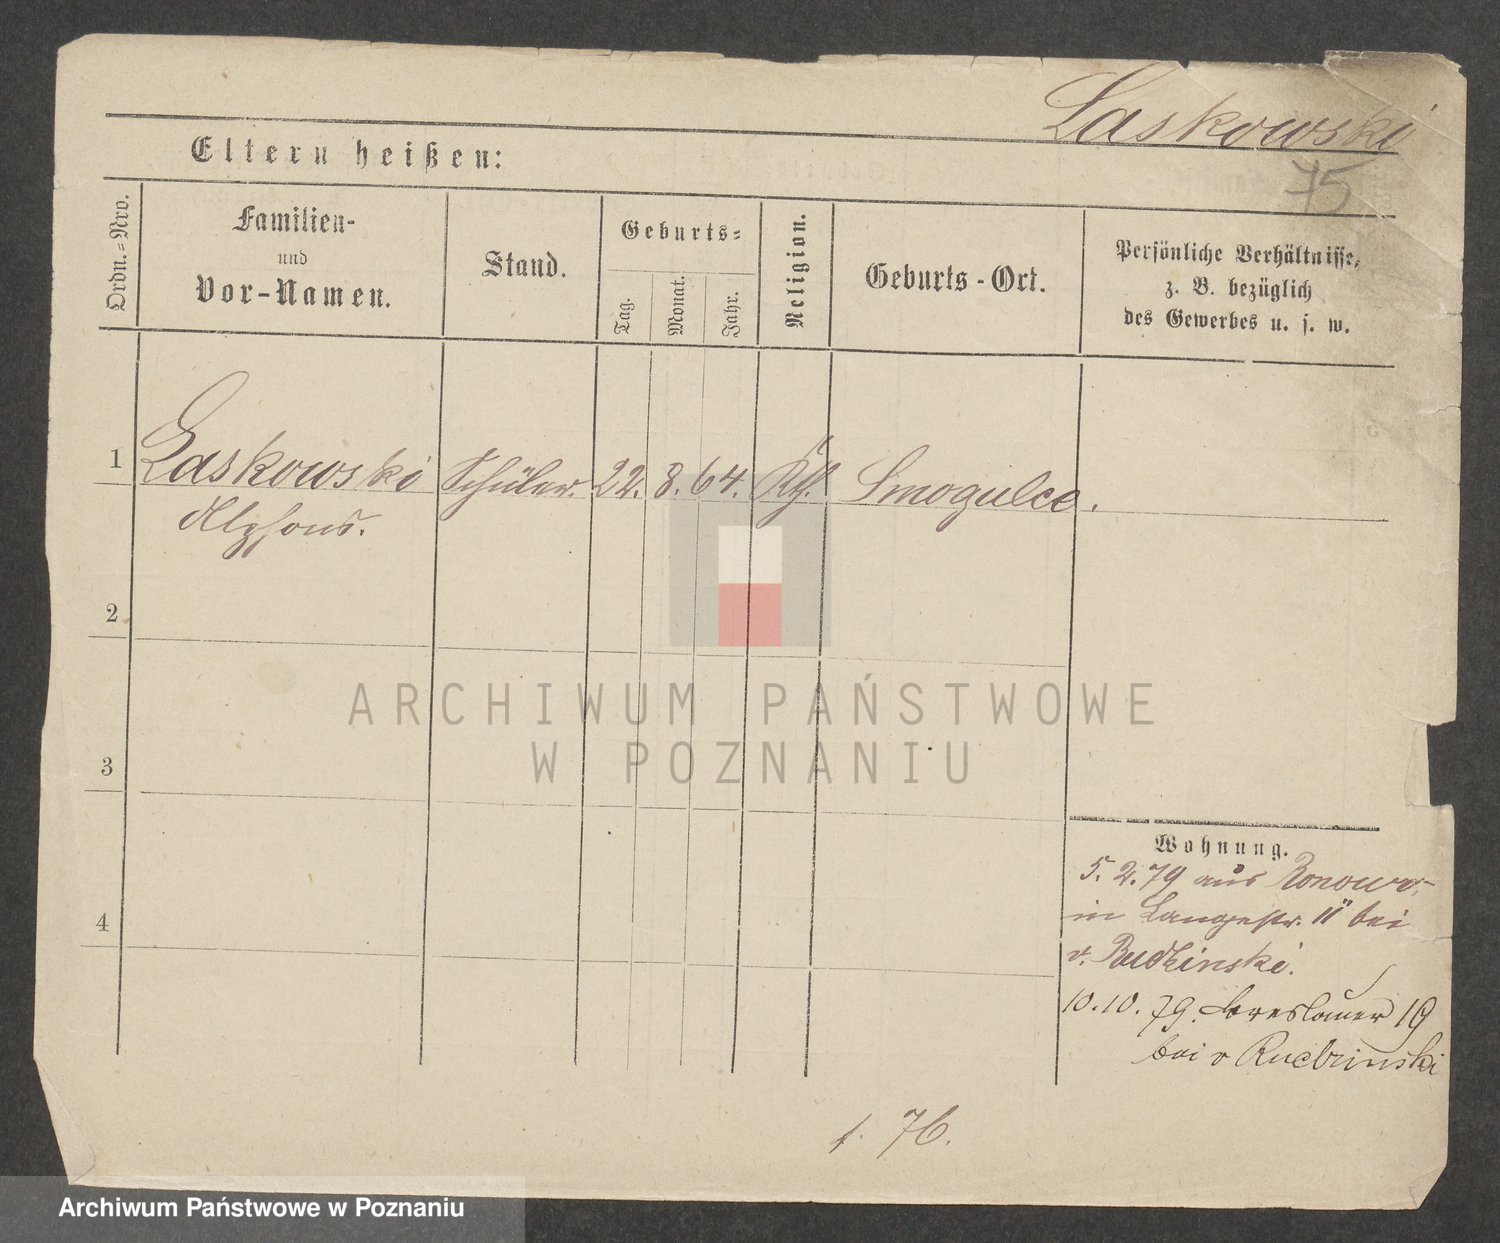 Laskowski
Eltern heißen:
75
Ordn.=Nro.
Familien-
und
Vor-Namen.
Stand.
Geburts=
Tag.
Monat.
Jahr.
Religion.
Geburts-Ort.
Persönliche Verhältnisse,
z. B. bezüglich
des Gewerbes u. s. w.
1 Laskowski Schüler. 22. 8. 64. Kth. Smogulec.
Alphons.
2
3
4
ARCHIWUM PAŃSTWOWE
W POZNANIU
Wohnung.
5. 2. 79 aus Ronowo
in Langestr. 11 bei
v. Rudzinski.
10. 10. 79. Breslauer 19
bei v Rudzinski
f. 76.
Archiwum Państwowe w Poznaniu